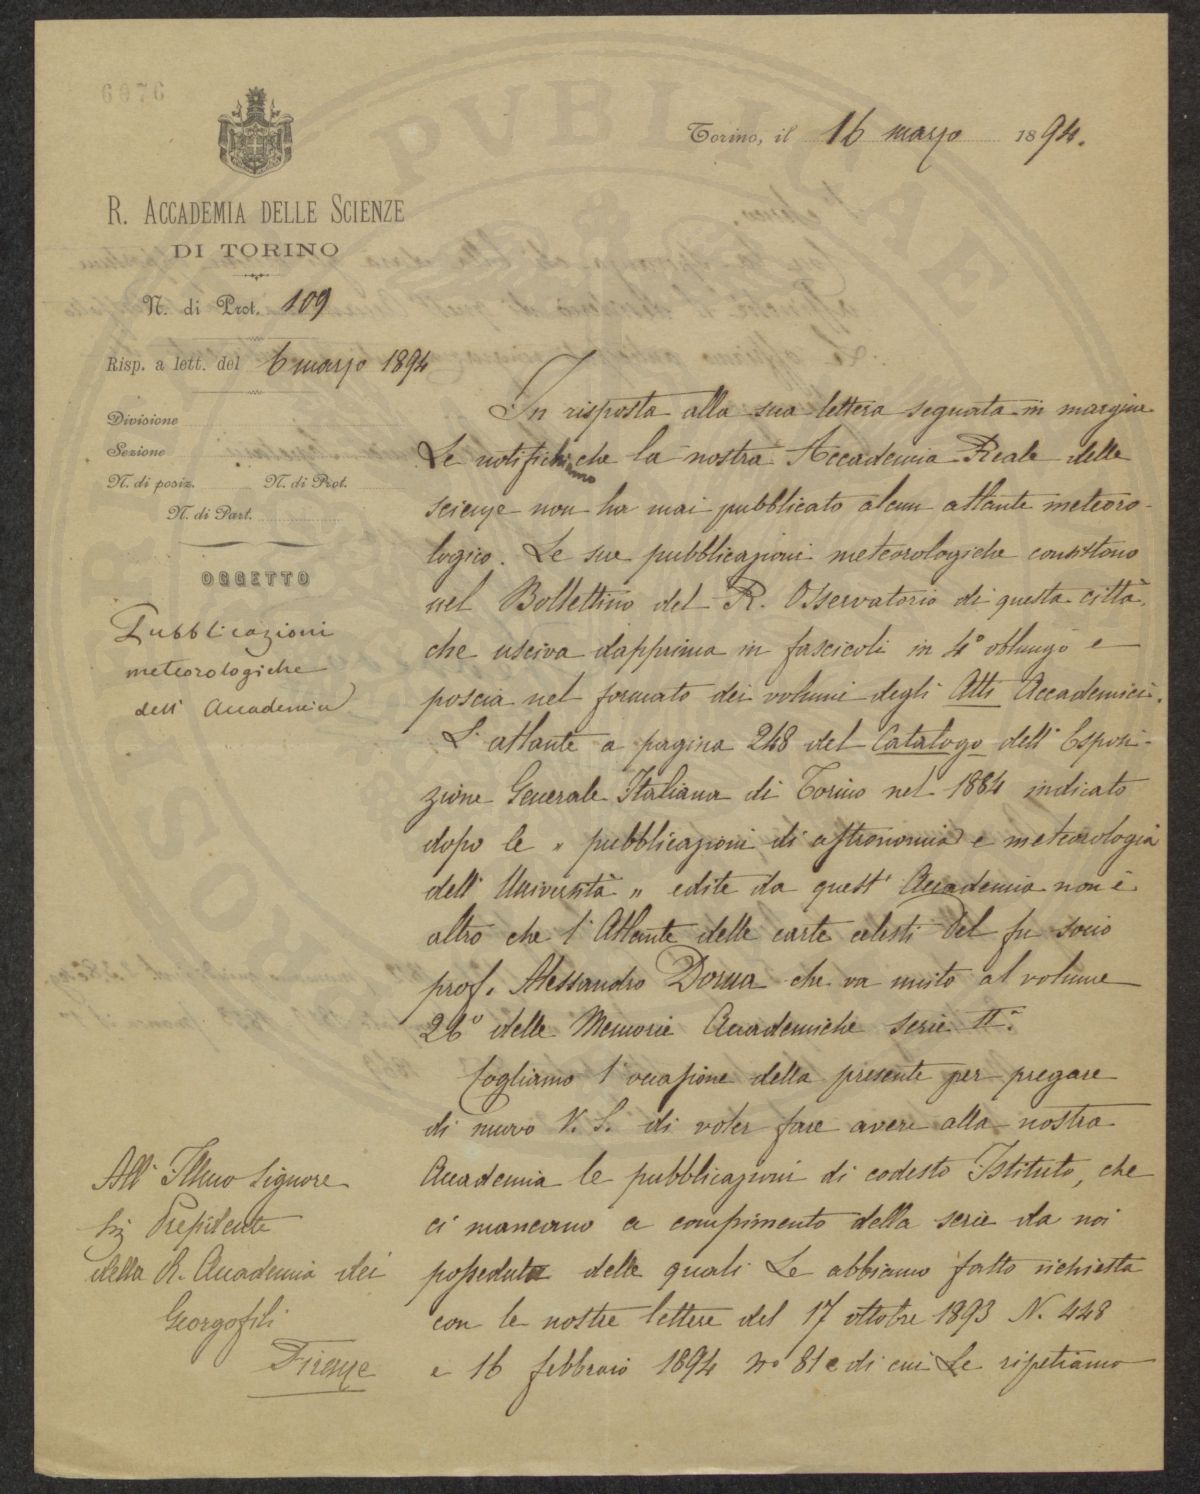 6076
Torino, il 16 marzo 1894.
R. ACCADEMIA DELLE SCIENZE
DI TORINO
N. di Prot. 109
Risp. a lett. del 6 marzo 1894
Divisione
Sezione
N. di posiz. N. di Prot.
N. di Part.
OGGETTO
Pubblicazioni
meteorologiche
dell' Accademia
In risposta alla sua lettera segnata in margine
Le notifichiamo che la nostra Accademia Reale delle
scienze non ha mai pubblicato alcun atlante meteoro-
logico. Le sue pubblicazioni meteorologiche consistono
nel Bollettino del R. Osservatorio di questa città,
che usciva dapprima in fascicoli in 4° oblungo e
poscia nel formato dei volumi degli Atti Accademici.
L'atlante a pagina 248 del Catalogo dell' Esposi-
zione Generale Italiana di Torino nel 1884 indicato
dopo le " pubblicazioni di astronomia e meteorologia
dell' Università " edite da quest' Accademia non è
altro che l'Atlante delle carte celesti del fu socio
prof. Alessandro Dorna che va unito al volume
26° delle Memorie Accademiche serie IIª.
Cogliamo l'occasione della presente per pregare
di nuovo V. S. di voler fare avere alla nostra
Accademia le pubblicazioni di codesto Istituto, che
ci mancano a compimento della serie da noi
posseduta delle quali Le abbiamo fatto richiesta
con le nostre lettere del 17 ottobre 1893 N. 448
e 16 febbraio 1894 no 81 e di cui Le ripetiamo
All' Illmo Signore
Presidente
della R. Accademia dei
Georgofili
Firenze
PVBLICAE